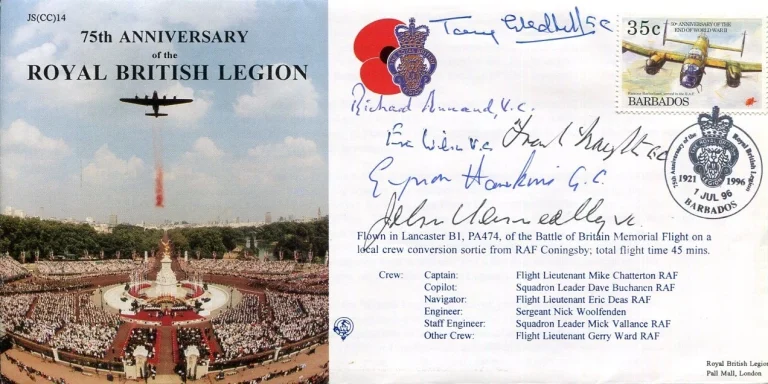 JS(CC)14
75th ANNIVERSARY
of the
ROYAL BRITISH LEGION
35c
50th ANNIVERSARY OF THE
END OF WORLD WAR II
BARBADOS
Richard Annand, V.C.
Eric Wilson V.C.
Eynon Hawkins G.C.
John Kenneally VC
75th Anniversary of the Royal British Legion
1921 1996
1 JUL 96
BARBADOS
Flown in Lancaster B1, PA474, of the Battle of Britain Memorial Flight on a
local crew conversion sortie from RAF Coningsby; total flight time 45 mins.
Crew: Captain: Flight Lieutenant Mike Chatterton RAF
Copilot: Squadron Leader Dave Buchanen RAF
Navigator: Flight Lieutenant Eric Deas RAF
Engineer: Sergeant Nick Woolfenden
Staff Engineer: Squadron Leader Mick Vallance RAF
Other Crew: Flight Lieutenant Gerry Ward RAF
Royal British Legion
Pall Mall, London